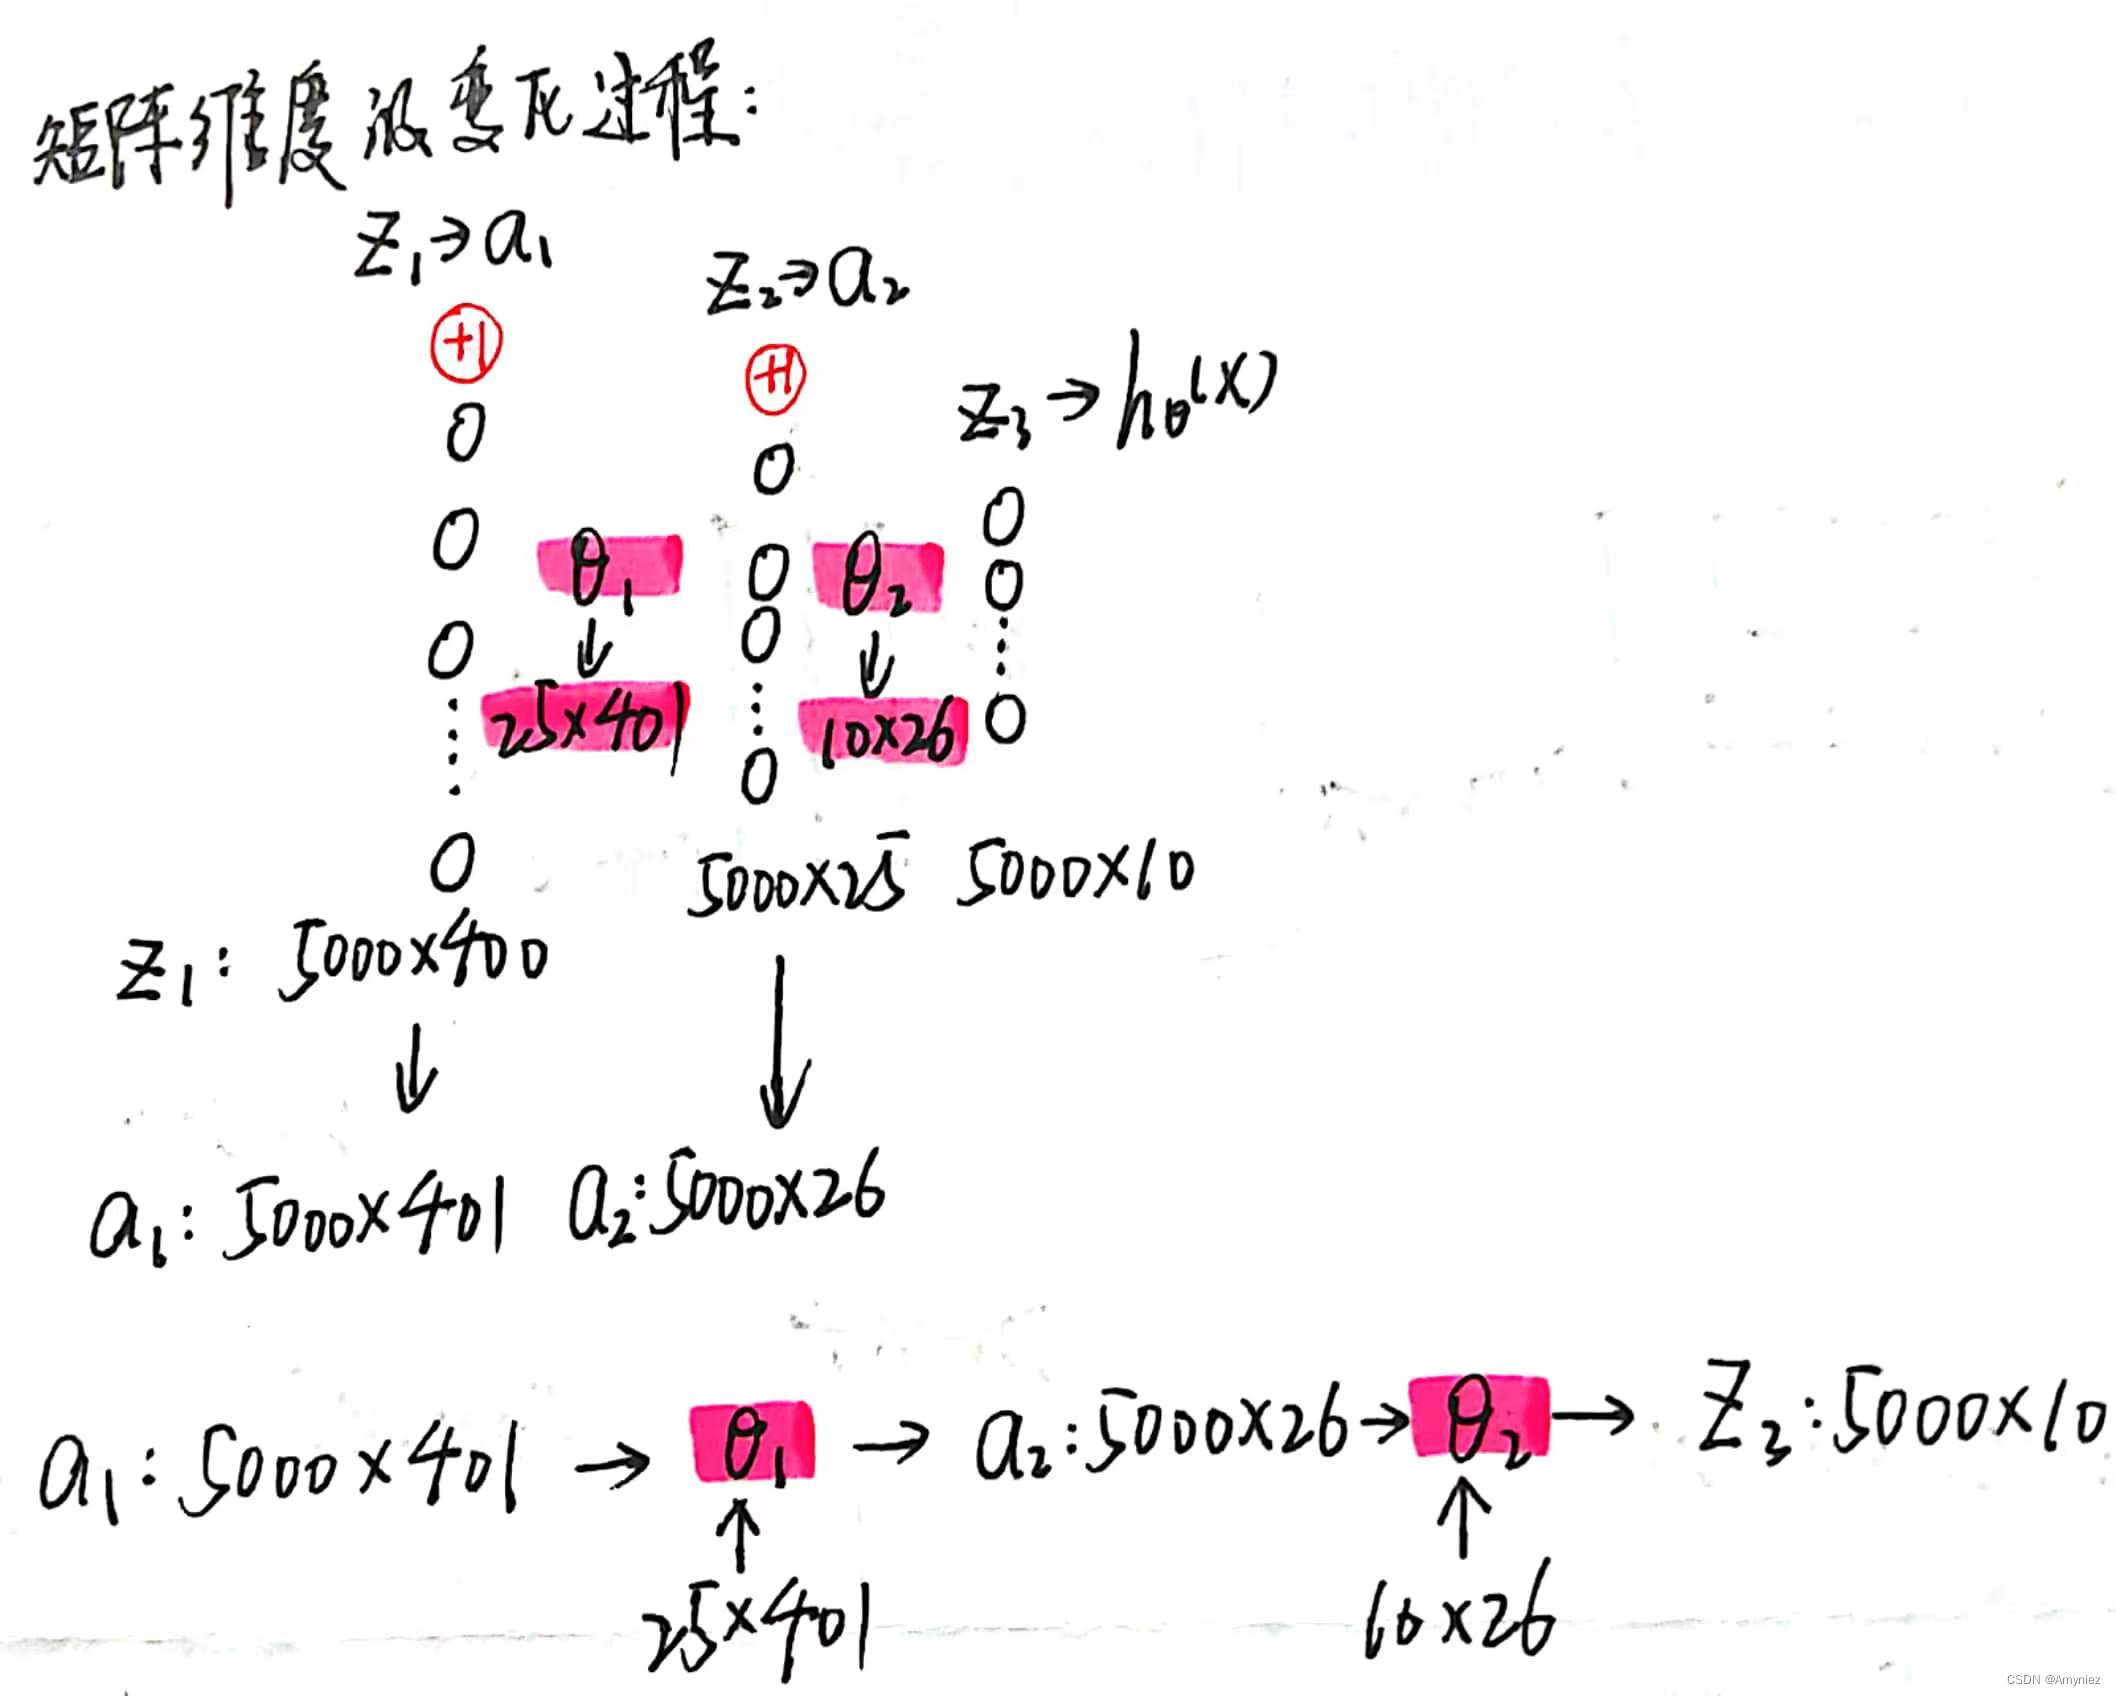 矩阵维度的变化过程:
z₁→a₁
z₂→a₂
z₃→hθ(x)
+1
+1
θ₁
θ₂
25×401
10×26
5000×25
5000×10
z₁: 5000×400
a₁: 5000×401
a₂: 5000×26
a₁: 5000×401 → θ₁ → a₂: 5000×26 → θ₂ → z₃: 5000×10
25×401
10×26
CSDN @Amyniez